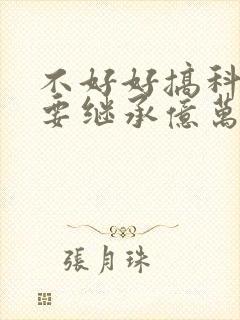 不好好搞科
要继承億萬
張月珠